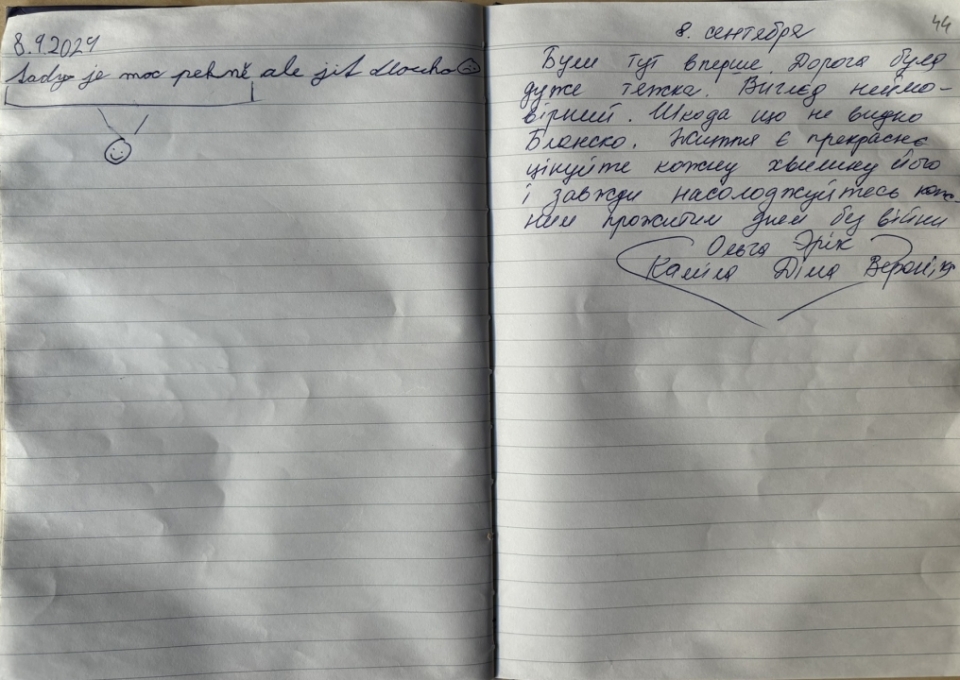 8.9.2024
Tady je moc pekně ale jít dlouho
44
8. сентября
Були тут вперше. Дорога була
дуже тяжка. Вигляд неймо-
вірний. Шкода що не видно
Бланско. Життя є прекрасне
цінуйте кожну хвилину його
і завжди насолоджуйтесь кож-
ним прожитим днем без війни
Ольга Эрік
Каміла Діма Вероніка